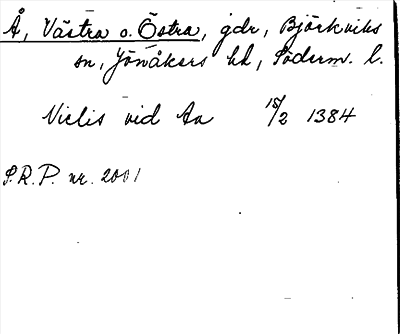 Å, Västra o. Östra, gdr, Björkviks
sn, Jönåkers hd, Söderm. l.
Niclis vid Aa 15/2 1384
S.R.P. nr. 2001